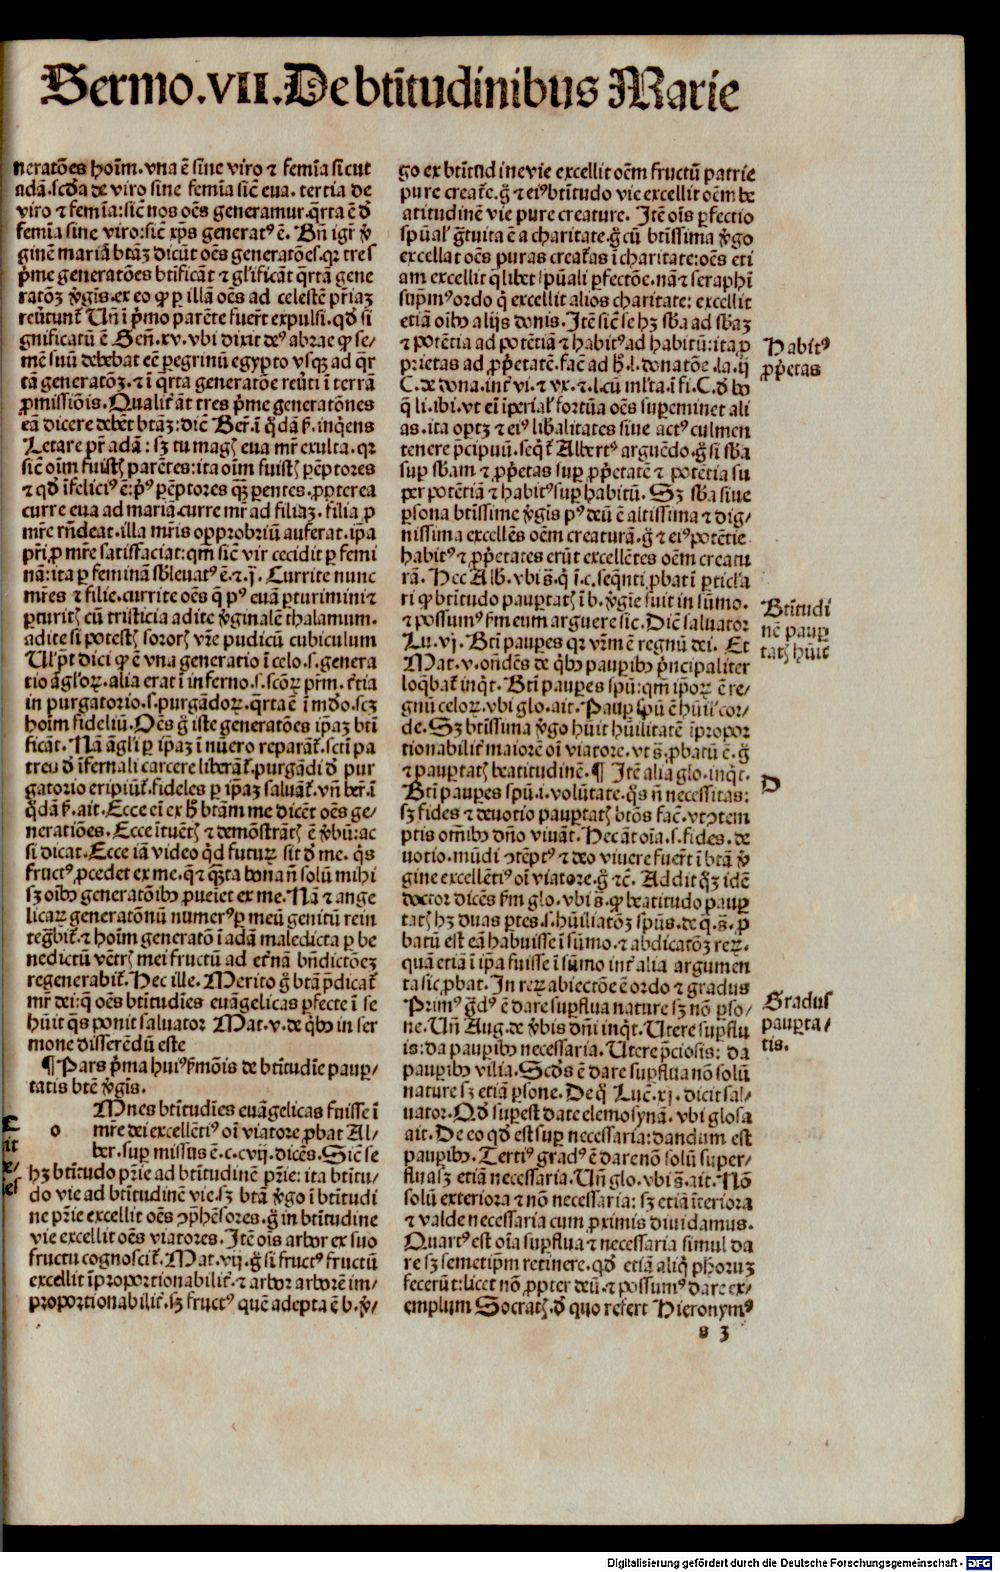 Sermo.VII.De btĩtudinibus Marie
neratões hoĩm.vna ẽ sine viro ⁊ femĩa sicut
adã.scďa de viro sine femĩa sicẽ eua. tertia de
viro ⁊ femĩa:sicẽ nos oẽs generamur.q̃rta ẽ ď
femĩa sine viro:sicẽ xp̃s generatꝰ ẽ. Bñ igr̃ v̾
ginẽ mariã btãꝫ dicũt oẽs generatões.qꝛ tres
p̃me generatões btificãt ⁊ gl̃ificãt q̃rtã gene
ratõꝫ v̾gĩs.ex eo ꝙ ꝑ illã oẽs ad celestẽ pr̃iaꝫ
reũtunt̃ Uñ ĩ p̃mo parẽte fuer̃t expulsi.qď si
gnificatũ ẽ Geñ.xv.vbi dixit deꝰ abrae ꝙ se⸗
mẽ suũ debebat eẽ ꝑegrinũ egypto vsqꝫ ad q̃r
tã generatõꝫ.⁊ ĩ q̃rta generatõe reũti ĩ terrã
ꝓmissiõis.Qualit̃ ãt tres p̃me generatõnes
eã dicere debẽt btãꝫ:dicẽ Ber.ĩ q̃dã ẜ.inq̃ens
Letare pr̃ adã: sꝫ tu magꝭ eua mr̃ exulta.qꝛ
sicẽ oĩm fuistꝭ parẽtes:ita oĩm fuistꝭ ꝑẽptores
⁊ qď ĩfeliciꝰ ẽ:p̃ꝰ ꝑẽptores q̃ꝫ ꝑentes.ꝓpterea
curre eua ad mariã.curre mr̃ ad filiaꝫ.filia ꝓ
mr̃e rñdeat.illa mr̃is opprobriũ auferat.ip̃a
pr̃i ꝓ mr̃e satisfaciat:qm̃ sicẽ vir cecidit ꝑ femi
nã:ita ꝑ feminã sb̾leuatꝰ ẽ.⁊.j. Currite nunc
mr̃es ⁊ filie.currite oẽs q̃ pꝰ euã ꝑturimini ⁊
ꝑturitꝭ cũ tristicia adite v̾ginalẽ thalamum.
adite si potestꝭ sororꝭ vr̃e pudicũ cubiculum
Ul̾ p̃t dici ꝙ ẽ vna generatio ĩ celo.s.genera
tio ãgl̾oꝝ.alia erat ĩ inferno.s.scõꝝ pr̃m. t̾tia
in purgatorio.s.purgãdoꝝ.q̃rta ẽ ĩ mďo.scꝫ
hoĩm fideliũ.Oẽs g̾ iste generatões ip̃aꝫ bti
ficãt.Nã ãgl̾i ꝑ ip̃aꝫ ĩ nũero reparãt̃.scti pa
tres ď ĩfernali carcere liberãt̃.purgãdi ď pur
gatorio eripiũt̃.fideles ꝑ ip̃aꝫ saluãt̃.vñ ber.ĩ
q̃dã ẜ.ait.Ecce eĩ ex h̾ btãm me dicẽt oẽs ge⸗
neratiões.Ecce ĩtuẽtꝭ ⁊ demõstrãtꝭ ẽ v̾bũ:ac
si dicat.Ecce iã video q̃d futurꝝ sit ď me. q̃s
fructꝰ ꝓcedet ex me.q̃ ⁊ q̃ꝫta bona ñ solũ mihi
sꝫ oĩbꝰ generatõibꝰ ꝓueiet ex me.Nã ⁊ ange
licaꝝ generatõnũ numerꝰ ꝑ meũ genitũ rein
tegr̃bit̃.⁊ hoĩm generatõ ĩ adã maledicta ꝑ be
nedictũ vẽtrꝭ mei fructũ ad et̾nã bñdictõeꝫ
regenerabit̃.Hec ille.Merito g̾ btã p̃dicat̃
mr̃ dei:q̃ oẽs btĩtudĩes euãgelicas ꝑfecte ĩ se
hũit q̃s ponit saluator Mat.v.de q̃bꝰ in ser
mone disserẽdũ este
¶Pars p̃ma huiꝰ ẜmõis de btĩtudĩe pauꝑ⸗
tatis btẽ v̾gĩs.
Mnes btĩtudĩes euãgelicas fuisse ĩ
o mr̃e dei excellẽtiꝰ oĩ viatore ꝓbat Al⸗
ber.suꝑ missus ẽ.c.cvij.dicẽs.Sicẽ se
hꝫ btĩtudo pr̃ie ad btĩtudinẽ pr̃ie: ita btĩtu⸗
do vie ad btĩtudinẽ vie.sꝫ btã v̾go ĩ btĩtudi
ne pr̃ie excellit oẽs ꝯp̃hẽsores.g̾ in btĩtudine
vie excellit oẽs viatores.Itẽ oĩs arbor ex suo
fructu cognoscit̃.Mat.vij.g̾ si fructꝰ fructũ
excellit ĩproportionabilit̃.⁊ arbor arborẽ im⸗
proportionabilit̃.sꝫ fructꝰ quẽ adepta ẽ b.v̾⸗
go ex btĩtudine vie excellit oẽm fructũ patrie
pure creat̃e.g̾ ⁊ eiꝰ btĩtudo vie excellit oẽm be
atitudinẽ vie pure creature. Itẽ oĩs ꝑfectio
sp̃ual̾ g̃tuita ẽ a charitate.g̾ cũ btĩssima v̾go
excellat oẽs puras creat̃as ĩ charitate:oẽs eti
am excellit q̃libet sp̃uali ꝑfectõe.nã ⁊ seraphĩ
supmꝰ ordo q̃ excellit alios charitate: excellit
etiã oĩbꝰ alijs donis. Itẽ sicẽ se hꝫ sb̾a ad sb̾aꝫ
⁊ potẽtia ad potẽtiã ⁊ habitꝰ ad habitũ:ita ꝓ
prietas ad ꝓp̾etatẽ.facẽ ad h̾.l.donatõe.la.ij
C.de dona.int̾ vi.⁊ vx.⁊.l.cũ ml̾ta.ĩ fi.C.ď bo
q̃ li.ibi.vt ei ĩperial̾ fortũa oẽs suꝑeminet ali
as.ita optꝫ ⁊ eiꝰ lib̾alitates siue actꝰ culmen
tenere p̃cipuũ.seqt̃ Albertꝰ arguẽdo.g̾ si sb̾a
suꝑ sb̾am ⁊ ꝓp̾etas suꝑ ꝓp̾etatẽ ⁊ potẽtia su
per potẽtiã ⁊ habitꝰ suꝑ habitũ. Sꝫ sb̾a siue
ꝑsona btĩssime v̾gĩs pꝰ deũ ẽ altissima ⁊ dig⸗
nissima excellẽs oẽm creaturã.g̾ ⁊ eiꝰ potẽtie
habitꝰ ⁊ ꝓp̾etates erũt excellẽtes oẽm creatu
rã. Hec Alb̾.vbi s̃.q̃ ĩ.c.seq̃nti ꝓbat ĩ ꝑticl̾a
ri ꝙ btĩtudo pauꝑtatꝭ ĩ b.v̾gĩe fuit in sũmo.
⁊ possumꝰ ẜm eum arguere sic. Dicẽ saluator
Lu.vj. Btĩ pauꝑes qꝛ vr̃m ẽ regnũ dei. Et
Mat.v.oñdẽs de q̃bꝰ pauꝑibꝰ p̃ncipaliter
loq̃bat̃ inq̃t. Btĩ pauꝑes sp̃ũ:qm̃ ip̃oꝝ ẽ re⸗
gnũ celoꝝ.vbi glo.ait. Pauꝑ sp̃ũ ẽ hũil̾ cor⸗
de. Sꝫ btĩssima v̾go hũit hũilitatẽ ĩpropor
tionabilit̃ maiorẽ oĩ viatore.vt s̃.ꝓbatũ ẽ.g̾
⁊ pauꝑtatꝭ beatitudinẽ.¶ Itẽ alia glo.inq̃t.
Btĩ pauꝑes sp̃ũ.i.volũtate.q̃s ñ necessitas:
sꝫ fides ⁊ deuotio pauꝑtatꝭ btõs facẽ.vt ꝯtem
ptis oĩbꝰ dño viuãt. Hec ãt oĩa.s.fides. de
uotio.mũdi ꝯtẽptꝰ ⁊ deo viuere fuer̃t ĩ btã v̾
gine excellẽtiꝰ oĩ viatore.g̾ ⁊c̃. Addit q̃ꝫ idẽ
doctor dicẽs ẜm glo.vbi s̃.ꝙ beatitudo pauꝑ
tatꝭ hꝫ duas ꝑtes.s.hũiliatõꝫ sp̃us.de q̃.s̃.ꝓ
batũ est eã habuisse ĩ sũmo.⁊ abdicatõꝫ reꝝ.
quã etiã ĩ ip̃a fuisse ĩ sũmo int̾ alia argumen
ta sic ꝓbat. In reꝝ abiectõe ẽ ordo ⁊ gradus
Primꝰ g̃dꝰ ẽ dare suꝑflua nature sꝫ nõ ꝑso⸗
ne. Uñ Aug.de v̾bis dñi inq̃t. Utere suꝑflu
is:da pauꝑibꝰ necessaria. Utere p̃ciosis: da
pauꝑibꝰ vilia. Scďs ẽ dare suꝑflua nõ solũ
nature sꝫ etiã ꝑsone. De q̃ Lucẽ.xj. dicit sal⸗
uator. Qď suꝑest date elemosynã. vbi glosa
ait. De eo qď est suꝑ necessaria: dandum est
pauꝑibꝰ. Tertiꝰ gradꝰ ẽ dare nõ solũ super⸗
flua sꝫ etiã necessaria. Uñ glo.vbi s̃.ait. Nõ
solũ exteriora ⁊ nõ necessaria: sꝫ etiã ĩteriora
⁊ valde necessaria cum ꝓximis diuidamus.
Quartꝰ est oĩa suꝑflua ⁊ necessaria simul da
re sꝫ semetip̃m retinere. qď etiã aliq̃ ph̃oruꝫ
fecerũt:licet nõ ꝓpter deũ.⁊ possumꝰ dare ex⸗
emplum Socratꝭ.ď quo refert Hieronymꝰ
Habitꝰ
ꝓp̾etas
Btĩtudi
nẽ pauꝑ
tatꝭ hũit̃
D
Gradus
pauꝑta⸗
tis.
g 3
Digitalisierung gefördert durch die Deutsche Forschungsgemeinschaft - DFG